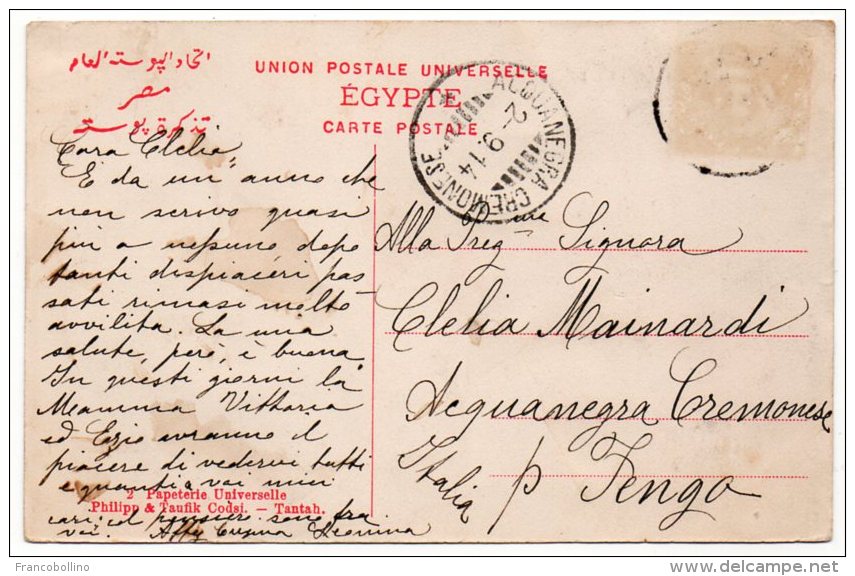 اتحاد البوسته العام
مصر
تذكرة بوسته
UNION POSTALE UNIVERSELLE
ÉGYPTE
CARTE POSTALE
ACQUANEGRA CREMONESE
2. 9.14
Cara Clelia
E da un' anno che
non scrivo quasi
più a nessuno dopo
tanti dispiaceri pas
sati rimasi molto
avvilita. La mia
salute, però, è buona
In questi giorni la
Mamma Vittoria
ed Ezio avranno il
piacere di vedervi tutti
e quanti a voi miei
cari ed pensiero sono fra
voi. Aff Cugina
Alla Preg me Signora
Clelia Mainardi
Acquanegra Cremonese
p Fengo
Italia
2 Papeterie Universelle
Philipp & Taufik Codsi. — Tantah.
Francobollino
delcampe.net